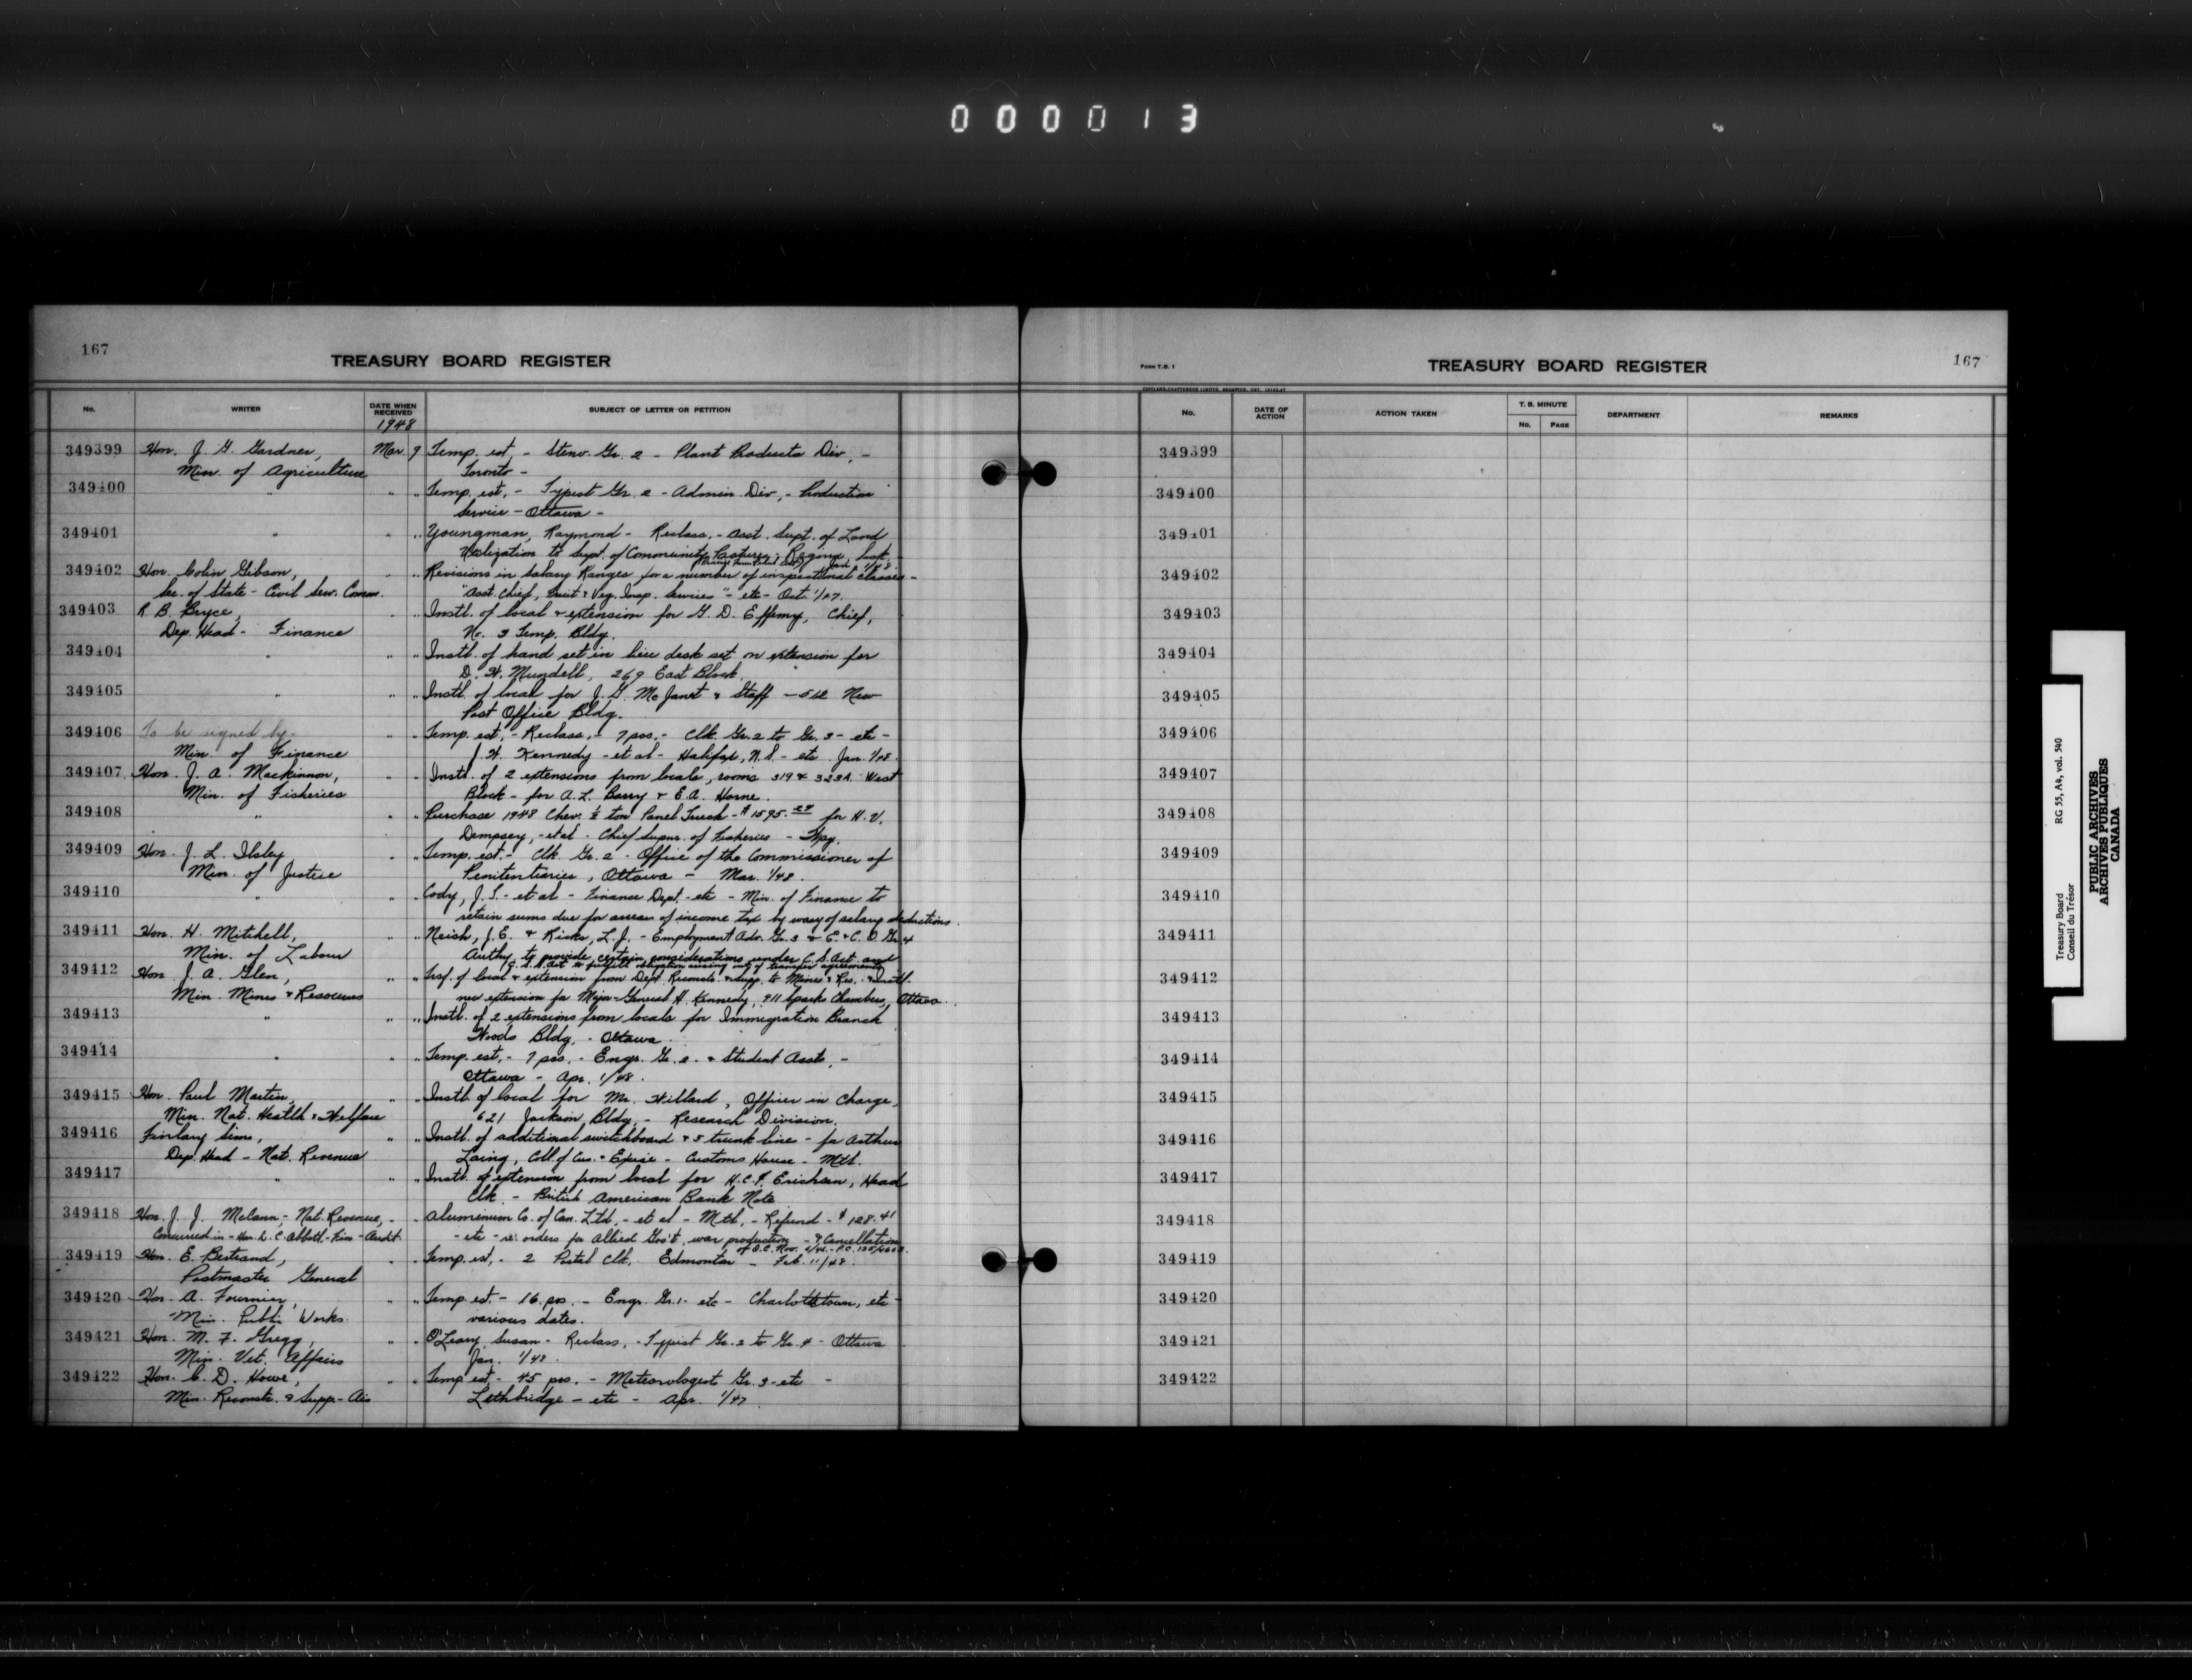 000013
167
TREASURY BOARD REGISTER
No. WRITER DATE WHEN RECEIVED SUBJECT OF LETTER OR PETITION
1948
349399 Hon. J. G. Gardner, Mar. 9 Temp. est. - Steno. Gr. 2 - Plant Products Div. -
Min. of Agriculture Toronto -
349400 " " " Temp. est. - Typist Gr. 2 - Admin. Div. - Production
Service - Ottawa -
349401 " " " Youngman, Raymond - Reclass. - Asst. Supt. of Land
Utilization to Supt. of Community Pastures, Regina, Sask.
349402 Hon. Colin Gibson, " " Revisions in Salary Ranges for a number of inspectional classes -
Sec. of State - Civil Serv. Comm. "Asst. Chief, Fruit & Veg. Insp. Services" - etc - Oct. 1/47.
349403 R. B. Bryce, " " Instl. of local & extension for G. D. Effemy, Chief,
Dep. Head - Finance No. 3 Temp. Bldg.
349404 " " " Instl. of hand set in lieu desk set on extension for
D. W. Mundell, 269 East Block.
349405 " " " Instl. of local for J. G. McJanet & Staff - 512 New
Post Office Bldg.
349406 To be signed by - " " Temp. est. - Reclass. - 7 pos. - Clk. Gr. 2 to Gr. 3 - etc -
Min. of Finance J. W. Kennedy - et al - Halifax, N.S. - etc Jan. 1/48.
349407 Hon. J. A. Mackinnon, " " Instl. of 2 extensions from locals, rooms 319 & 323A West
Min. of Fisheries Block - for A. L. Barry & E. A. Horne.
349408 " " " Purchase 1948 Chev. ½ ton Panel Truck - $1595. for H. V.
Dempsey, - et al - Chief Supvr. of Fisheries - Wpg.
349409 Hon. J. L. Ilsley " " Temp. est. - Clk. Gr. 2 - Office of the Commissioner of
Min. of Justice Penitentiaries, Ottawa - Mar. 1/48.
349410 " " " Cody, J. S. - et al - Finance Dept. - etc - Min. of Finance to
retain sums due for arrears of income tax by way of salary deductions.
349411 Hon. H. Mitchell, " " Neish, J. E. & Risk, L. J. - Employment Adv. Gr. 3 & E. & C. O. Gr. 4
Min. of Labour Authy. to provide certain considerations under C. S. Act and
C. S. S. Act to fulfill obligation arising out of transfer agreements
349412 Hon. J. A. Glen, " " Trsf. of local & extension from Dept. Reconstr. & Supp. to Mines & Res. & Instl.
Min. Mines & Resources new extension for Major-General H. Kennedy, 911 Sparks Chambers, Ottawa.
349413 " " " Instl. of 2 extensions from locals for Immigration Branch
Woods Bldg. - Ottawa
349414 " " " Temp. est. - 7 pos. - Engr. Gr. 2. & Student Assts. -
Ottawa - Apr. 1/48.
349415 Hon. Paul Martin, " " Instl. of local for Mr. Willard, Officer in Charge,
Min. Nat. Health & Welfare 621 Jackson Bldg. - Research Division.
349416 Finlay Sims, " " Instl. of additional switchboard & 5 trunk line - for Arthur
Dep. Head - Nat. Revenue Laing, Coll. of Cus. & Excise - Customs House - Mtl.
349417 " " " Instl. of extension from local for H. C. P. Erichsen, Head
Clk. - British American Bank Note
349418 Hon. J. J. McCann, - Nat. Revenue, " " Aluminum Co. of Can. Ltd. - et al - Mtl. - Refund - $128.41
Concurred in - Hon. D. C. Abbott - Fin - Audit - etc - re: orders for Allied Gov't. war production - & Cancellation
349419 Hon. E. Bertrand, " " Temp. est. - 2 Postal Clk. Edmonton - Feb. 11/48.
Postmaster General
349420 Hon. A. Fournier, " " Temp. est. - 16 pos. - Engr. Gr. 1 - etc - Charlottetown, etc -
Min. Public Works. various dates.
349421 Hon. M. F. Gregg, " " O'Leary, Susan - Reclass. - Typist Gr. 2 to Gr. 4 - Ottawa
Min. Vet. Affairs Jan. 1/48.
349422 Hon. C. D. Howe, " " Temp. est - 45 pos. - Meteorologist Gr. 3 - etc -
Min. Reconstr. & Supp. - Air Lethbridge - etc - Apr. 1/47.
FORM T.B. 1
TREASURY BOARD REGISTER
167
No. DATE OF ACTION ACTION TAKEN T. B. MINUTE No. PAGE DEPARTMENT REMARKS
349399
349400
349401
349402
349403
349404
349405
349406
349407
349408
349409
349410
349411
349412
349413
349414
349415
349416
349417
349418
349419
349420
349421
349422
Treasury Board RG 55, A4, vol. 540
Conseil du Trésor
PUBLIC ARCHIVES
ARCHIVES PUBLIQUES
CANADA